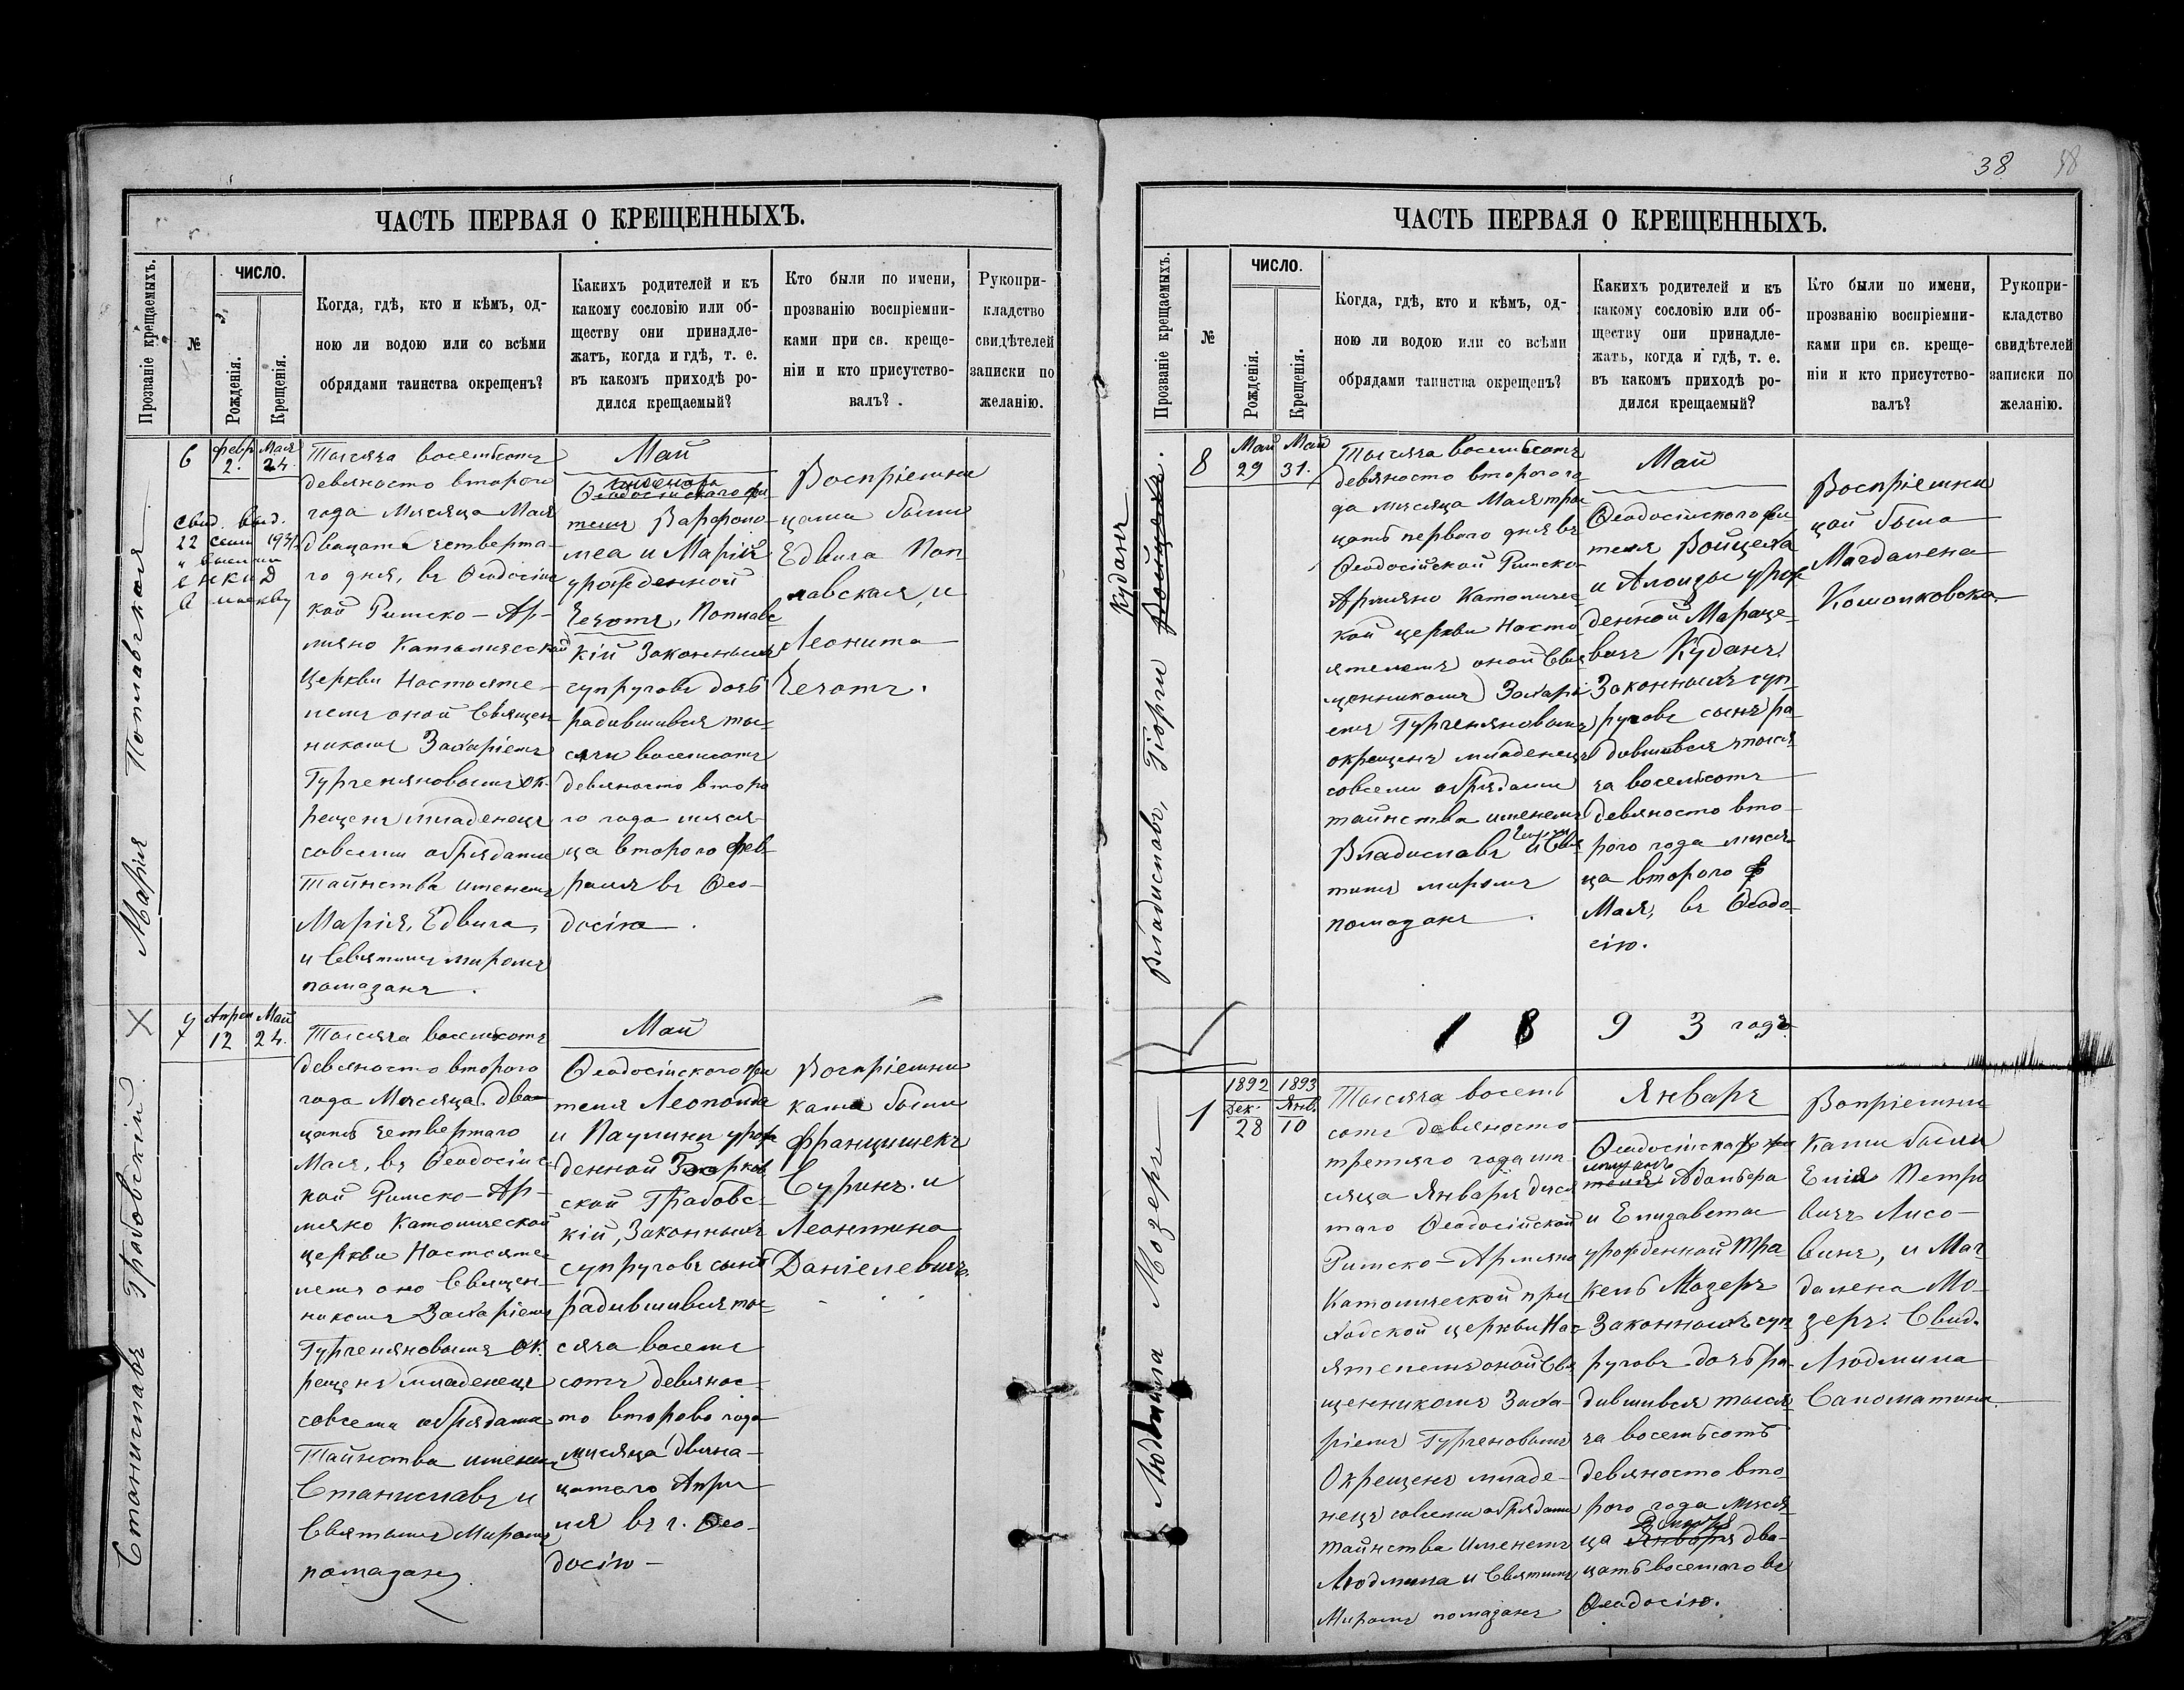 38
ЧАСТЬ ПЕРВАЯ О КРЕЩЕННЫХЪ.
Прозваніе крещаемыхъ.
№
ЧИСЛО.
Рожденія.
Крещенія.
Когда, гдѣ, кто и кѣмъ, од-
ною ли водою или со всѣми
обрядами таинства окрещенъ?
Какихъ родителей и къ
какому сословію или об-
ществу они принадле-
жатъ, когда и гдѣ, т. е.
въ какомъ приходѣ ро-
дился крещаемый?
Кто были по имени,
прозванію воспріемни-
ками при св. креще-
ніи и кто присутство-
валъ?
Рукопри-
кладство
свидѣтелей
записки по
желанію.
Марія Поплавская
6
февр 2.
Мая 24.
Свид. выд.
22
Тысяча восемьсотъ
девяносто второго
года Мѣсяца Мая
двацать четверта-
го дня, въ Ѳеодосійс
кой Римско-Ар-
мяно Католической
Церкви Настояте-
лемъ оной Священ-
никомъ Захаріемъ
Гургеняновымъ ок-
рещенъ младенецъ
совсеми обрядами
Таинства именемъ
Марія, Едвига,
и Святымъ миромъ
помазанъ.
Май
Ѳеодосійскаго жи
теля Варфоло-
меа и Маріи
урожденной
Чечотъ, Поплавс
кій Законныхъ
супруговъ дочь
радившився ты-
сячи восемсотъ
девяносто второ
го года мися-
ца второго Фев-
раля въ Ѳео-
досіи.
Воспріемни
цами были
Едвига Поп
лавская, и
Леонита
Чечотъ.
Станиславъ Грабовскій.
7
Апрел 12
Май 24.
Тысяча восемьсотъ
девяносто второго
года Мѣсяца два-
цать четвертаго
Мая, въ Ѳеодосійс
кой Римско-Ар-
мяно Католической
церкви Настояте
лемъ оно Священ-
никомъ Захаріемъ
Гургеняновымъ ок-
рещенъ младенецъ
совсеми обрядами
Таинства именемъ
Станиславъ и
Святымъ Миромъ
помазанъ.
Май
Ѳеодосійскаго жи
теля Леопольда
и Паулини урож
денной
ской Грабовс-
кій, Законныхъ
супруговъ сынъ
радившився ты-
сяча восемъ
сотъ девянос-
то второво года
мисяца двена-
цатаго Апре
ля въ г. Ѳео-
досіи
Воспріемни
ками были
Францишекъ
Суринъ и
Леонтина
Даніелевичъ.
ЧАСТЬ ПЕРВАЯ О КРЕЩЕННЫХЪ.
Прозваніе крещаемыхъ.
№
ЧИСЛО.
Рожденія.
Крещенія.
Когда, гдѣ, кто и кѣмъ, од-
ною ли водою или со всѣми
обрядами таинства окрещенъ?
Какихъ родителей и къ
какому сословію или об-
ществу они принадле-
жатъ, когда и гдѣ, т. е.
въ какомъ приходѣ ро-
дился крещаемый?
Кто были по имени,
прозванію воспріемни-
ками при св. креще-
ніи и кто присутство-
валъ?
Рукопри-
кладство
свидѣтелей
записки по
желанію.
Владиславъ, Гіорги
Куданъ
8
Май 29
Май 31.
Тысяча восемьсотъ
девяносто второго го
да мисяца Мая три
цать первого дня въ
Ѳеодосійской Римско-
Армяно Католичес
кой церкви Насто
ятелемъ оной Свя
щенникомъ Захарі
емъ Гургеняновымъ
окрещенъ младенецъ
совсеми обрядами
таинства именемъ
Владиславъ и Свя
тимъ миромъ
помазанъ.
Май
Ѳеодосійскаго жи
теля Войцеха
и Алоизы урож
денной Мараце-
вичъ Куданъ
Законныхъ суп-
руговъ сынъ ра
дившився тыся
ча восемьсотъ
девяносто вто-
рого года мися-
ца второго
Мая, въ Ѳеодо-
сіи.
Воспріемни
цой была
Магдалена
1893 годъ
Людмила Мозеръ
1
1892 Дек. 28
1893 Янв. 10
Тысяча восемь
сотъ девяносто
третяго года ми-
сяца Января деся
таго Ѳеодосійской
Римско-Армяно
Католической при
ходской церкви Нас
ятелемъ оной Свя
щенникомъ Заха-
ріемъ Гургеновымъ
Окрещенъ младе-
нецъ совсеми обрядами
таинства Именемъ
Людмила и Святимъ
Миромъ помазанъ
Январъ
мещанъ
Адольбера
и Елизаветы
урожденной Тра-
кель Мозеръ
Законныхъ суп
руговъ дочь ра-
дившився тыся
ча восемьсотъ
девяносто вто-
рого года мися
Декабря
ца Января два-
цать восемаго въ
Ѳеодосіи.
Вопріемни
ками были
Елія Петро
вичъ Лисо-
винъ, и Маг
далена Мо-
зеръ. Свид.
Людмила